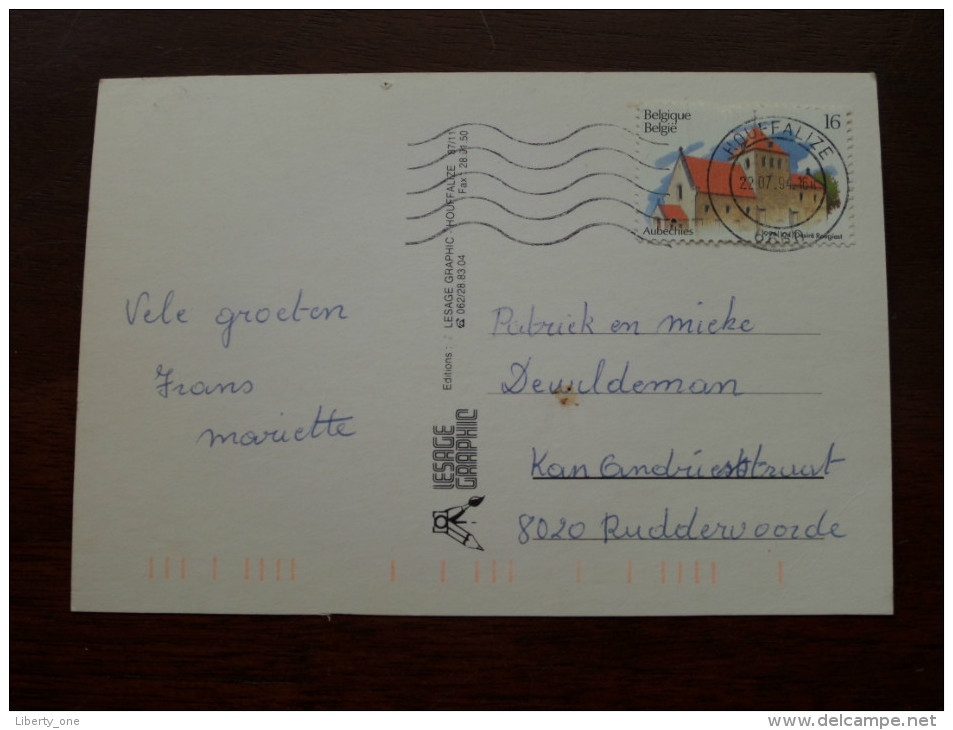 Belgique
België
16
HOUFFALIZE
22.07.94.16
Aubechies
Vele groeten
Frans
mariette
Editions :
LESAGE GRAPHIC - HOUFFALIZE 87/11
☎ 062/28.83.04 Fax : 28.01.50
LESAGE
GRAPHIC
Patriek en mieke
Dewuldeman
Kan Andriesstraat
8020 Ruddervoorde
Liberty_one
www.delcampe.net